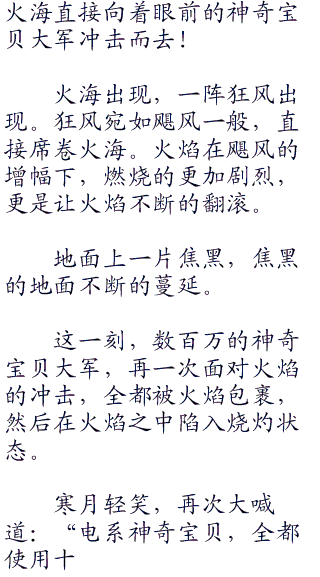 火海直接向着眼前的神奇宝
贝大军冲击而去！
火海出现，一阵狂风出
现。狂风宛如飓风一般，直
接席卷火海。火焰在飓风的
增幅下，燃烧的更加剧烈，
更是让火焰不断的翻滚。
地面上一片焦黑，焦黑
的地面不断的蔓延。
这一刻，数百万的神奇
宝贝大军，再一次面对火焰
的冲击，全都被火焰包裹，
然后在火焰之中陷入烧灼状
态。
寒月轻笑，再次大喊
道：“电系神奇宝贝，全都
使用十